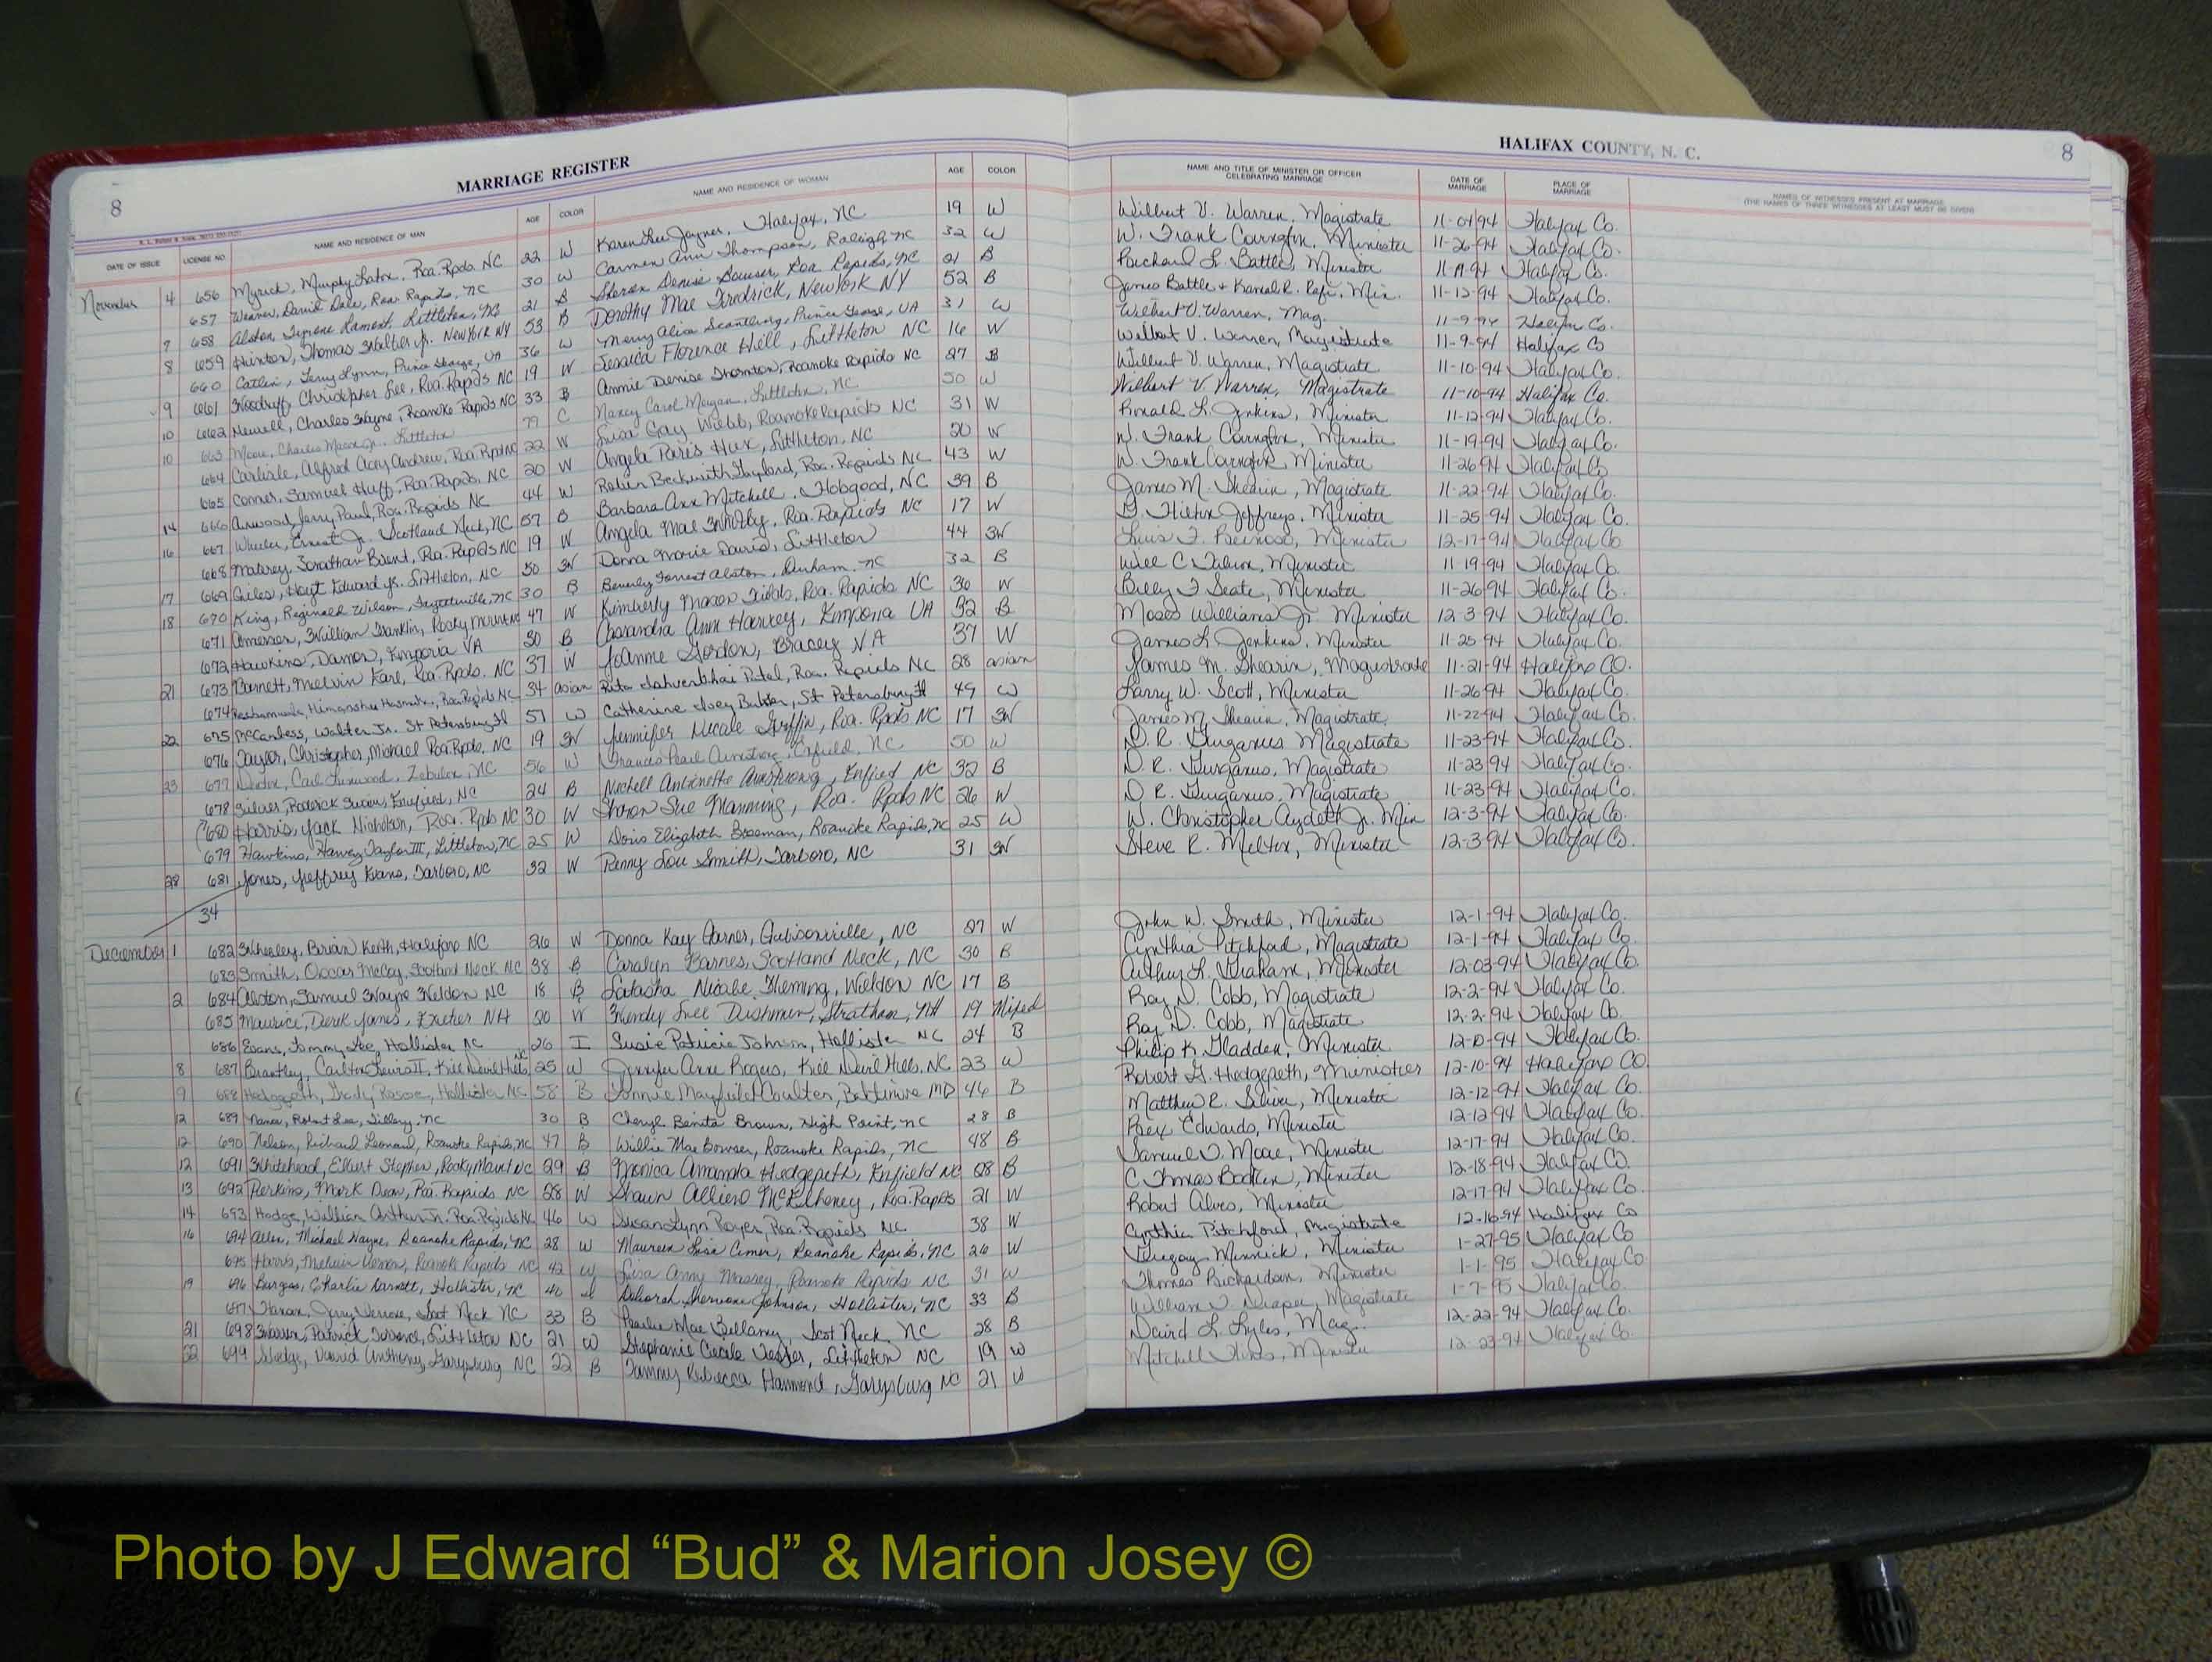 MARRIAGE REGISTER
HALIFAX COUNTY, N. C.
8
8
DATE OF ISSUE LICENSE NO NAME AND RESIDENCE OF MAN AGE COLOR NAME AND RESIDENCE OF WOMAN AGE COLOR NAME AND TITLE OF MINISTER OR OFFICER CELEBRATING MARRIAGE DATE OF MARRIAGE PLACE OF MARRIAGE NAMES OF WITNESSES PRESENT AT MARRIAGE (THE NAMES OF THREE WITNESSES AT LEAST MUST BE GIVEN)
November 4 656 Myrick, Murphy Roa. Rpds. NC 22 W Karen Lee Joyner, Halifax, NC 19 W Wilbert V. Warren, Magistrate 11-04-94 Halifax Co.
657 David Dale, Roa. Rapids, NC 30 W Carmen Ann Thompson, Raleigh, NC 32 W W. Frank Covington, Minister 11-26-94 Halifax Co.
7 658 Alston, Tyrone Lamont, Littleton, NC 21 B Sharon Denise Bowser, Roa Rapids, NC 21 B Richard L. Battle, Minister Halifax Co.
8 659 Hinton, Thomas Walter Jr. New York NY 53 B Dorothy Mae Fredrick, New York NY 52 B James Battle & Min. 11-12-94 Halifax Co.
660 Catlin, Terry Lynn, Prince George, VA 36 W Merry Alice Prince George, VA 31 W Wilbert V. Warren, Mag. 11-9-94 Halifax Co.
9 661 Woodruff, Christopher Lee, Roa. Rapids NC 19 W Jessica Florence Hill, Littleton NC 16 W Wilbert V. Warren, Magistrate 11-9-94 Halifax Co
10 662 Newell, Charles Wayne, Roanoke Rapids NC 33 B Annie Denise Thornton, Roanoke Rapids NC 27 B Wilbert V. Warren, Magistrate 11-10-94 Halifax Co.
10 663 Moore, Charles Littleton 79 C Nancy Carol Littleton, NC 50 W Wilbert V. Warren, Magistrate 11-10-94 Halifax Co.
664 Carlisle, Alfred Acey Andrew, Roa. Rpds NC 22 W Lisa Gay Webb, Roanoke Rapids NC 31 W Ronald L. Jenkins, Minister 11-12-94 Halifax Co.
665 Conner, Samuel Huff, Roa. Rapids, NC 20 W Angela Paris Hux, Littleton, NC 20 W W. Frank Covington, Minister 11-19-94 Halifax Co.
14 666 Jerry Paul, Roa. Rapids NC 44 W Robin Beckwith Roa. Rapids NC 43 W W. Frank Covington, Minister 11-26-94 Halifax Co
16 667 Wheeler, Ernest Jr. Scotland Neck, NC 57 B Barbara Ann Mitchell, Hobgood, NC 39 B James M. Shearin, Magistrate 11-22-94 Halifax Co.
668 Jonathan Brent, Roa. Rapids NC 19 W Angela Mae Roa. Rapids NC 17 W Jeffreys, Minister 11-25-94 Halifax Co.
17 669 Giles, Hoyt Edward Jr. Littleton, NC 50 W Donna Marie Davis, Littleton 44 W Luis F. Minister 12-17-94 Halifax Co
18 670 King, Reginald Wilson, Fayetteville, NC 30 B Beverly Forrest Alston, Durham NC 32 B Will C. Minister 11-19-94 Halifax Co.
671 William Franklin, Rocky Mount NC 47 W Kimberly Roa. Rapids NC 36 W Billy F. Seate, Minister 11-26-94 Halifax Co.
672 Hawkins, Damon, Emporia VA 30 B Cassandra Ann Harvey, Emporia VA 32 B Moses Williams Jr. Minister 12-3-94 Halifax Co.
21 673 Barnett, Melvin Earl, Roa. Rpds. NC 37 W JoAnne Gordon, Bracey VA 37 W James L. Jenkins, Minister 11-25-94 Halifax Co.
674 Roa Rapids NC 34 asian Rita Patel, Roa. Rapids NC 28 asian James M. Shearin, Magistrate 11-21-94 Halifax CO.
22 675 McCanless, Walter Jr. St Petersburg Fl 51 W Catherine Joey St Petersburg Fl 49 W Larry W. Scott, Minister 11-26-94 Halifax Co.
676 Taylor, Christopher Michael Roa. Rpds. NC 19 W Jennifer Nicole Griffin, Roa. Rpds NC 17 W James M. Shearin, Magistrate 11-22-94 Halifax Co.
23 677 Carl Linwood, Zebulon, NC 56 W Frances Pearl Enfield, NC 50 W D. R. Gurganus Magistrate 11-23-94 Halifax Co.
678 Silver, Roderick Enfield, NC 24 B Nichell Antoinette Armstrong, Enfield NC 32 B D. R. Gurganus, Magistrate 11-23-94 Halifax Co.
680 Harris, Jack Nicholson, Roa. Rpds NC 30 W Sharon Sue Manning, Roa. Rpds NC 26 W D. R. Gurganus, Magistrate 11-23-94 Halifax Co.
679 Hawkins, Harvey Taylor III, Littleton, NC 25 W Doris Elizabeth Bozeman, Roanoke Rapids, NC 25 W W. Christopher Aydlett Jr. Min 12-3-94 Halifax Co.
28 681 Jones, Jeffrey Evans, Tarboro, NC 32 W Penny Lou Smith, Tarboro, NC 31 W Steve R. Melton, Minister 12-3-94 Halifax Co.
34
December 1 682 Wheeley, Brian Keith, Halifax NC 26 W Donna Kay Garner, Gibsonville, NC 27 W John W. Smith, Minister 12-1-94 Halifax Co.
683 Smith, Oscar McCoy, Scotland Neck NC 38 B Caralyn Barnes, Scotland Neck, NC 30 B Cynthia Pitchford, Magistrate 12-1-94 Halifax Co.
2 684 Alston, Samuel Wayne Weldon NC 18 B Latasha Nicole Fleming, Weldon NC 17 B Arthur L. Graham, Minister 12-03-94 Halifax Co.
685 Maurice, Derek James, Exeter NH 20 W Wendy Lee Dishman, Stratham, NH 19 Mixed Roy D. Cobb, Magistrate 12-2-94 Halifax Co.
686 Evans, Tommy Lee, Hollister NC 26 I Susie Patricia Johnson, Hollister NC 24 B Roy D. Cobb, Magistrate 12-2-94 Halifax Co.
8 687 Brantley, Carlton Lewis II, Kill Devil Hills, NC 25 W Jennifer Anne Rogers, Kill Devil Hills, NC 23 W Philip K. Gladden, Minister Halifax Co.
9 688 Hedgepeth, Grady Roscoe, Hollister NC 58 B Connie Mayfield Coulter, Baltimore MD 46 B Robert G. Hedgepeth, Minister 12-10-94 Halifax CO.
12 689 Nance, Robert Lee, Tillery, NC 30 B Cheryl Benita Brown, High Point, NC 28 B Matthew R. Silver, Minister 12-12-94 Halifax Co.
12 690 Nelson, Richard Leonard, Roanoke Rapids, NC 47 B Willie Mae Bowser, Roanoke Rapids, NC 48 B Rex Edwards, Minister 12-12-94 Halifax Co.
12 691 Whitehead, Elbert Stephen, Rocky Mount NC 29 B Monica Amanda Hedgepeth, Enfield NC 28 B Samuel D. Moore, Minister 12-17-94 Halifax Co.
13 692 Perkins, Mark Dean, Roa. Rapids NC 28 W Shawn McElheney, Roa. Rapids 21 W C. Thomas Minister 12-18-94 Halifax Co.
14 693 Hodge, William Arthur Jr. Roa. Rapids NC 46 W Susan Lynn Royer, Roa. Rapids NC 38 W Robert Alves, Minister 12-17-94 Halifax Co.
16 694 Allen, Michael Wayne, Roanoke Rapids, NC 28 W Maureen Lisa Roanoke Rapids, NC 26 W Cynthia Pitchford, Magistrate 12-16-94 Halifax Co
695 Harris, Melvin Vernon, Roanoke Rapids NC 42 W Lisa Massey, Roanoke Rapids NC 31 W Gregory Minnick, Minister 1-27-95 Halifax Co
19 696 Burgess, Charlie Barnett, Hollister, NC 40 I Deborah Johnson, Hollister, NC 33 B Thomas Richardson, Minister 1-1-95 Halifax Co.
697 Jerry Scot Neck NC 33 B Pearlie Mae Bellamy, Scot Neck NC 28 B William T. Draper, Magistrate 1-7-95 Halifax Co.
21 698 Warren, Patrick Littleton NC 21 W Stephanie Cecile Littleton NC 19 W David L. Lyles, Mag. 12-22-94 Halifax Co.
22 699 Sledge, David Anthony, Garysburg NC 22 B Tammy Rebecca Hammond, Garysburg NC 21 W Mitchell Minister 12-23-94 Halifax Co.
Photo by J Edward “Bud” & Marion Josey ©